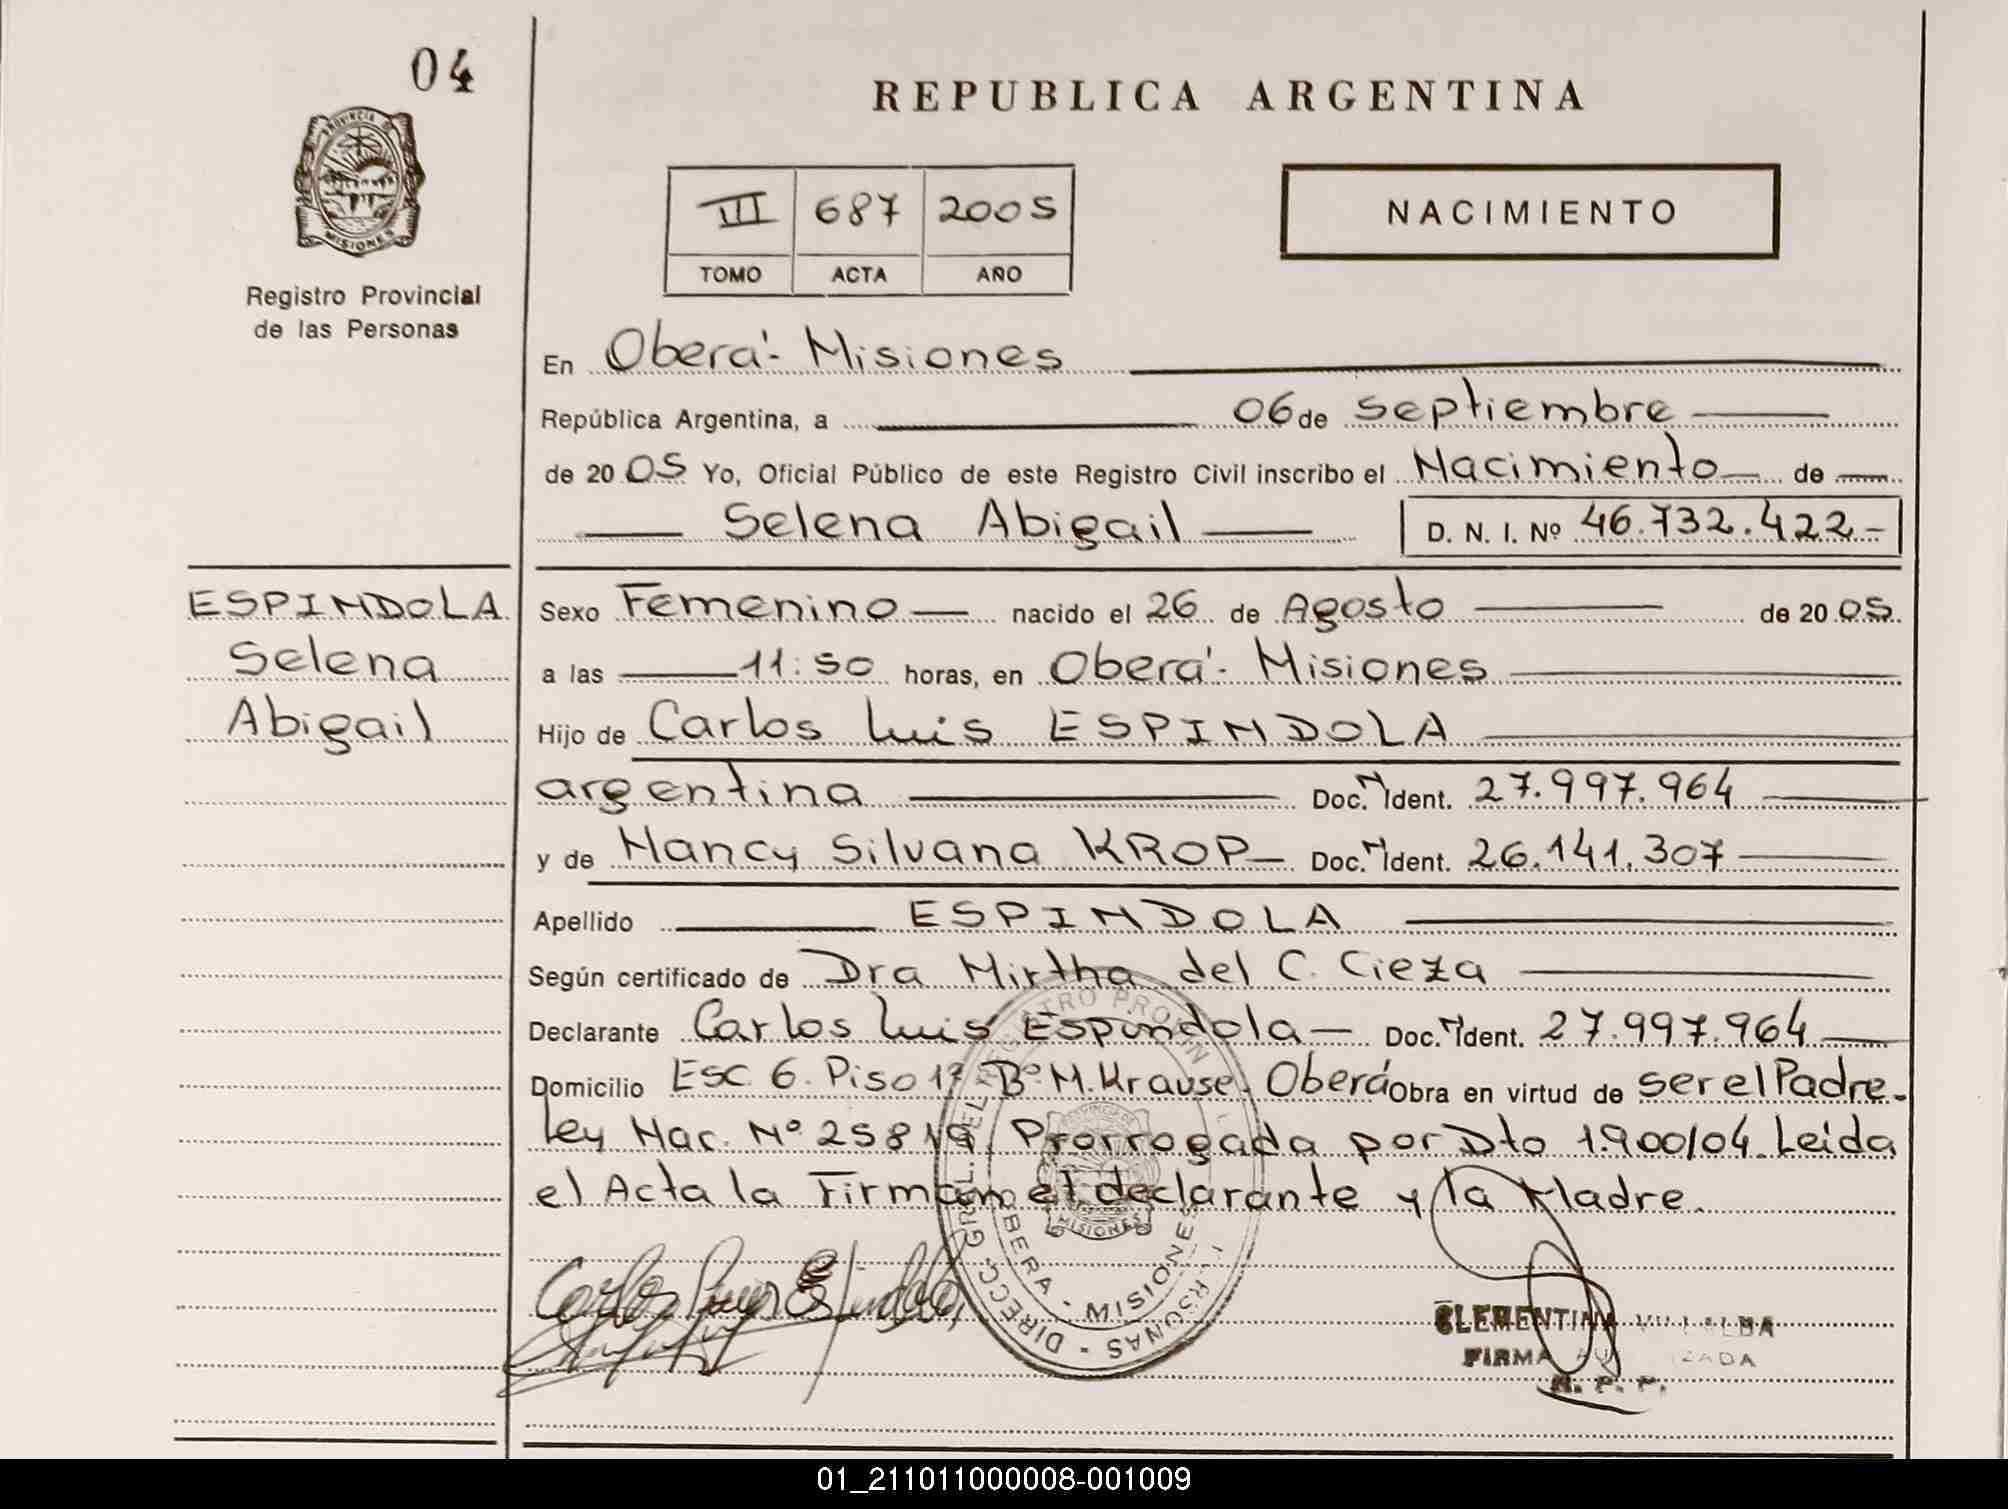 04
REPUBLICA ARGENTINA
PROVINCIA D
MISIONES
Registro Provincial
de las Personas
III 687 2005
TOMO ACTA AÑO
NACIMIENTO
En Oberá - Misiones
República Argentina, a 06 de septiembre
de 20 05 Yo, Oficial Público de este Registro Civil inscribo el Nacimiento de
Selena Abigail D. N. I. Nº 46.732.422-
ESPINDOLA
Selena
Abigail
Sexo Femenino nacido el 26 de Agosto de 20 05
a las 11:50 horas, en Oberá - Misiones
Hijo de Carlos Luis ESPINDOLA
argentina Doc. N Ident. 27.997.964
y de Nancy Silvana KROP Doc. N Ident. 26.141.307
Apellido ESPINDOLA
Según certificado de Dra Mirtha del C. Cieza
Declarante Carlos Luis Espindola Doc. N Ident. 27.997.964
Domicilio Esc 6. Piso 1º Bº M. Krause. Oberá Obra en virtud de ser el Padre.
Ley Nac. Nº 25819. Prorrogada por Dto 1.900/04. Leida
el Acta la Firman el declarante y la Madre.
MISIONES
OBERA - MISIONES
CLEMENTINA VILLALBA
FIRMA AUTORIZADA
R. P. P.
01_211011000008-001009